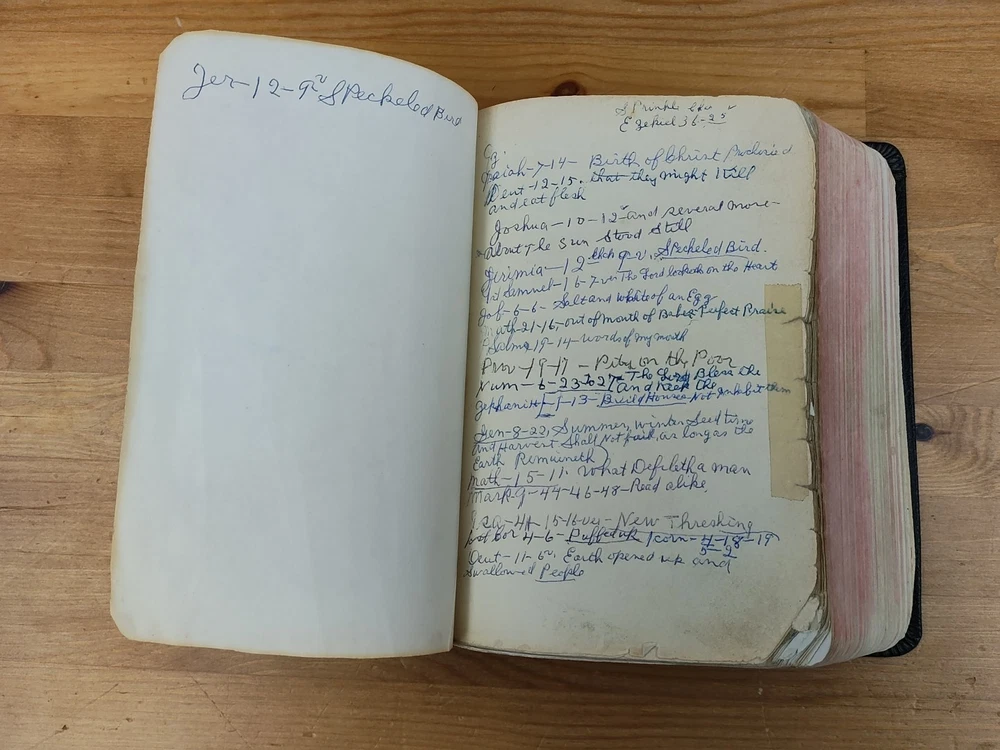 Jer-12-9v Speckeled Bird
Sprinkle
Ezekiel 36-25
Isaiah-7-14- Birth of Christ
Deut-12-15. that they might Kill
and eat flesh
Joshua-10-12v and several more-
About The Sun Stood Still
Jerimia-12-9v. Speckeled Bird.
1st Samuel-16-7ver The Lord looketh on the Heart
Job-6-6- Salt and white of an Egg
Math-21-16, out of mouth of Babes Perfect Praise
Psalms 19-14-words of my mouth
Prov-19-17-Pity on the Poor
Num-6-23 to 27v The Lord Bless the
and Keep the
Zephaniah-1-13-Build Houses Not Inhibit them
Gen-8-22, Summer, winter Seed time
and Harvest Shall Not fail, as long as the
Earth Remaineth)
Math-15-11. What Defileth a man
Mark-9-44-46-48-Read alike.
Isa-41-15-16-ver-New Threshing
1st Cor 4-6-Puffed up 1corn-4-18-19
5-2
Deut-11-6v. Earth opened up and
Swallowed People